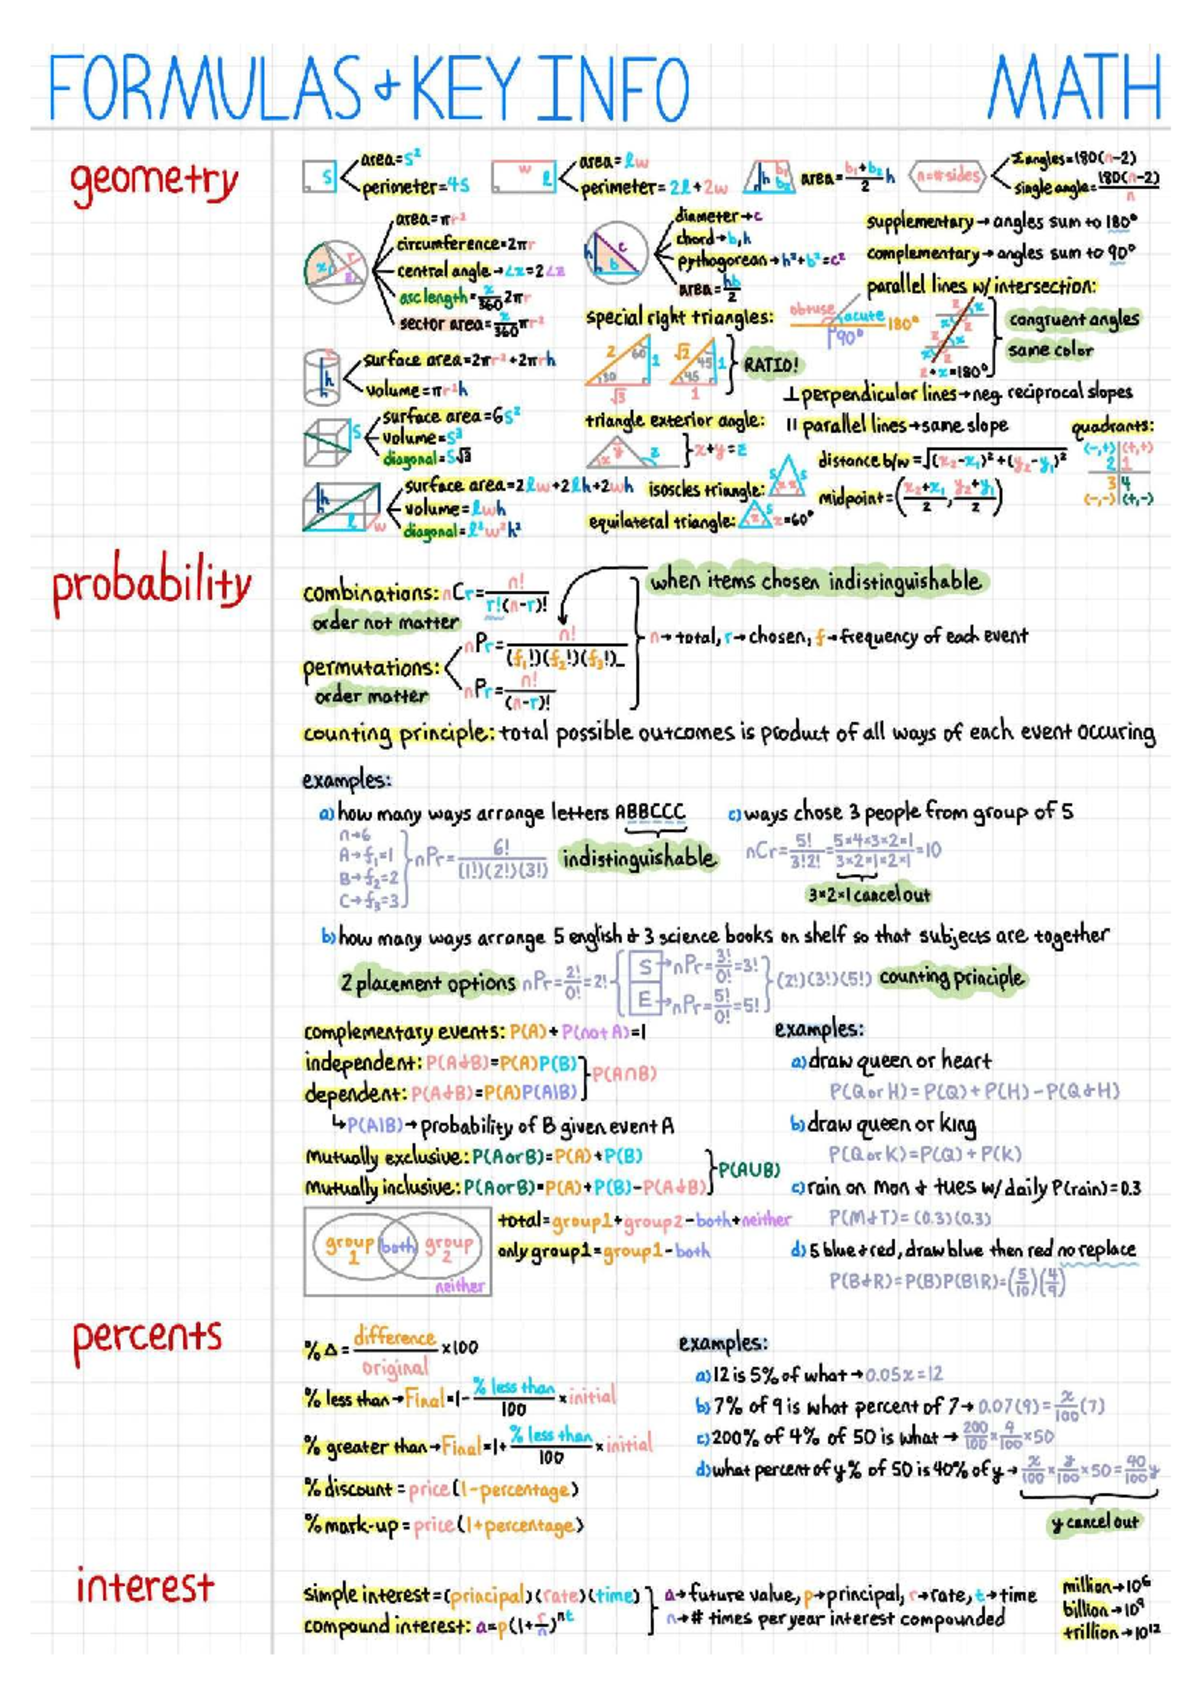 FORMULAS + KEY INFO MATH
geometry
s
area=s²
perimeter=4s
w
l
area=lw
perimeter=2l+2w
h b₁ b₂
area=b₁+b₂/2 h
n=#sides
Σangles=180(n-2)
single angle=180(n-2)/n
area=πr²
circumference=2πr
central angle→∠x=2∠z
asc length=x/360 2πr
sector area=x/360 πr²
diameter→c
chord→b,h
pythagorean→h²+b²=c²
area=hb/2
h c b
supplementary→angles sum to 180°
complementary→angles sum to 90°
parallel lines w/ intersection:
obtuse acute 180°
90°
z+x=180°
congruent angles
same color
special right triangles:
2 60 1 30 √3
√2 45 1 45 1
RATIO!
h
surface area=2πr²+2πrh
volume=πr²h
⊥perpendicular lines→neg. reciprocal slopes
s
surface area=6s²
volume=s³
diagonal=s√3
triangle exterior angle:
x y z
x+y=z
|| parallel lines→same slope
quadrants:
(-,+) (+,+)
2 1
3 4
(-,-) (+,-)
distance b/w=√(x₂-x₁)²+(y₂-y₁)²
midpoint=(x₂+x₁/2, y₂+y₁/2)
h l w
surface area=2lw+2lh+2wh
volume=lwh
diagonal=l²w²h²
isoscles triangle:
s s x x
equilateral triangle:
s x=60°
probability
combinations: nCr=n!/r!(n-r)!
order not matter
when items chosen indistinguishable
permutations:
order matter
nPr=n!/(f₁!)(f₂!)(f₃!)_
nPr=n!/(n-r)!
n→total, r→chosen, f→frequency of each event
counting principle: total possible outcomes is product of all ways of each event occuring
examples:
a) how many ways arrange letters ABBCCC
n→6
A→f₁=1
B→f₂=2
C→f₃=3
nPr=6!/(1!)(2!)(3!)
indistinguishable
c) ways chose 3 people from group of 5
nCr=5!/3!2!=5×4×3×2×1/3×2×1×2×1=10
3×2×1 cancel out
b) how many ways arrange 5 english & 3 science books on shelf so that subjects are together
2 placement options nPr=2!/0!=2!
S→nPr=3!/0!=3!
E→nPr=5!/0!=5!
(2!)(3!)(5!) counting principle
complementary events: P(A)+P(not A)=1
independent: P(A&B)=P(A)P(B)
dependent: P(A&B)=P(A)P(A|B)
P(A∩B)
↳P(A|B)→probability of B given event A
mutually exclusive: P(A or B)=P(A)+P(B)
mutually inclusive: P(A or B)=P(A)+P(B)-P(A&B)
P(AUB)
group 1 both group 2
neither
total=group1+group2-both+neither
only group1=group1-both
examples:
a) draw queen or heart
P(Q or H)=P(Q)+P(H)-P(Q&H)
b) draw queen or king
P(Q or K)=P(Q)+P(K)
c) rain on mon & tues w/ daily P(rain)=0.3
P(M&T)=(0.3)(0.3)
d) 5 blue & red, draw blue then red no replace
P(B&R)=P(B)P(B|R)=(5/10)(4/9)
percents
%Δ=difference/original×100
% less than→Final=1-% less than/100×initial
% greater than→Final=1+% less than/100×initial
% discount=price(1-percentage)
% mark-up=price(1+percentage)
examples:
a) 12 is 5% of what→0.05x=12
b) 7% of 9 is what percent of 7→0.07(9)=x/100(7)
c) 200% of 4% of 50 is what→200/100×4/100×50
d) what percent of y% of 50 is 40% of y→x/100×y/100×50=40/100y
y cancel out
interest
simple interest=(principal)(rate)(time)
compound interest: a=p(1+r/n)ⁿᵗ
a→future value, p→principal, r→rate, t→time
n→# times per year interest compounded
million→10⁶
billion→10⁹
trillion→10¹²